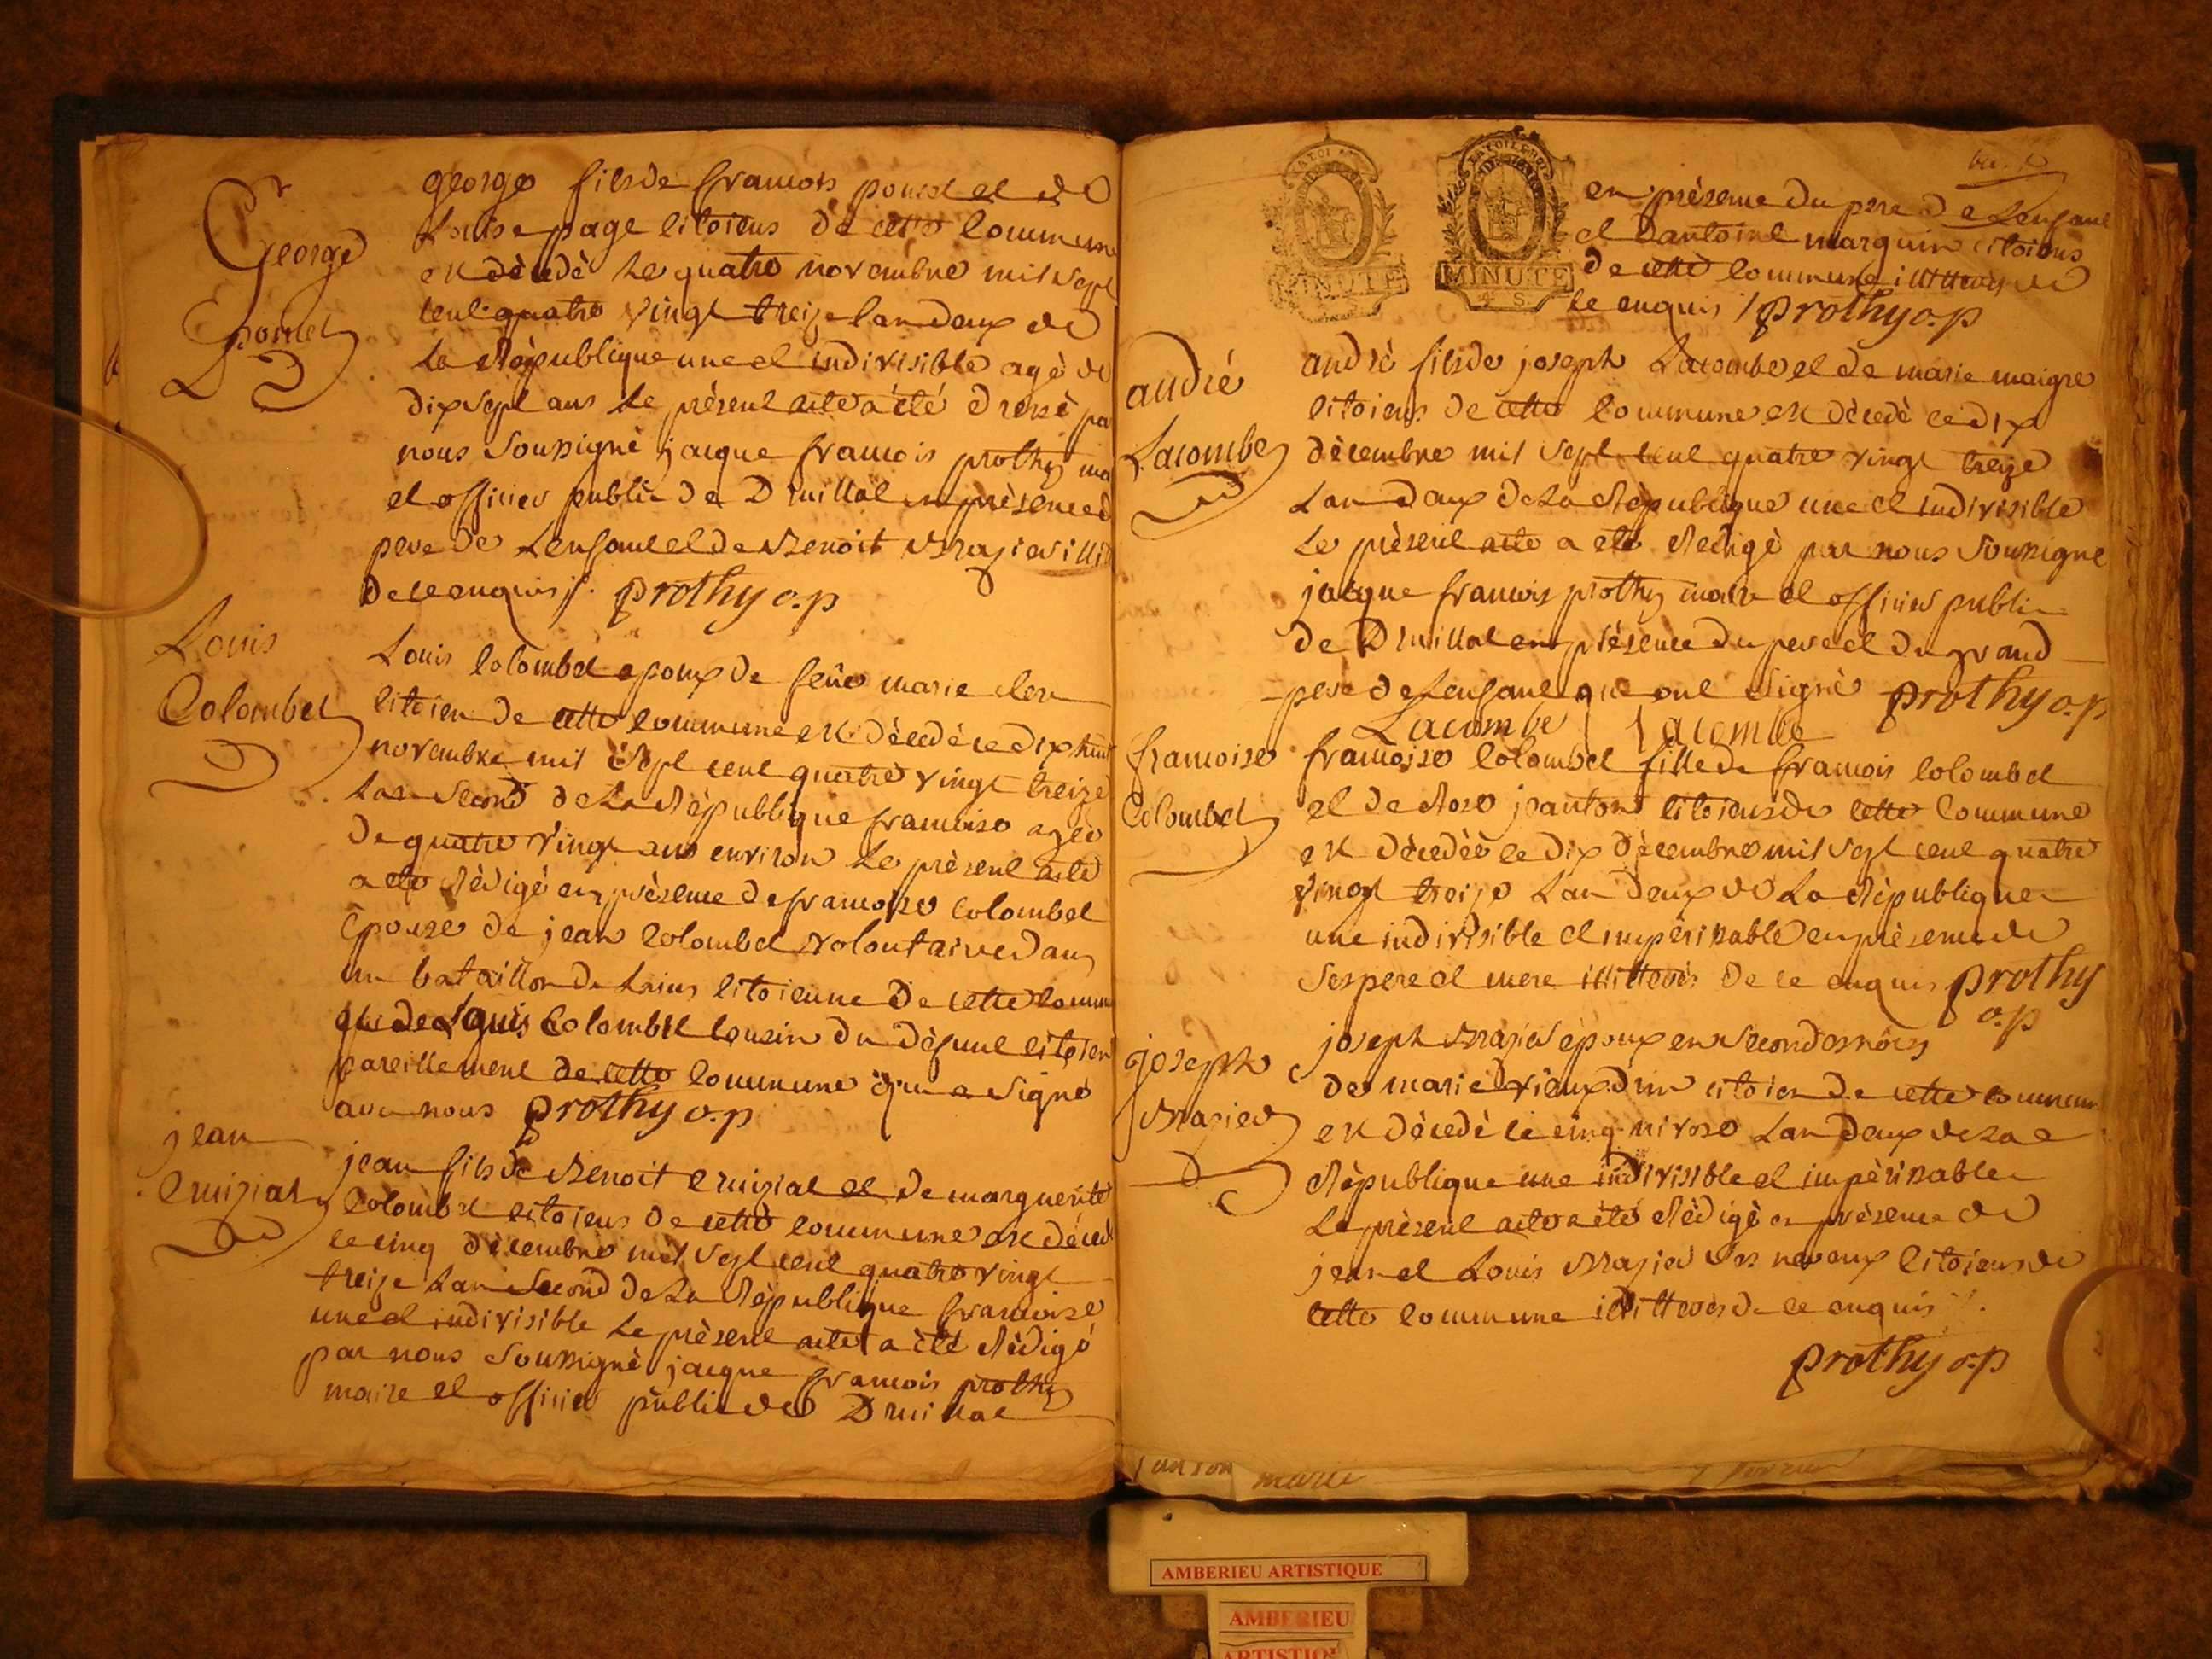 George
Pomel
george fils de francois pomel et de
Louise page citoiens de cette commune
est dècèdè le quatre novembre mil sept
cent quatre vingt treize lan deux de
la rèpublique une et indivisible agè de
dix sept ans le prèsent acte a été dressè par
nous soussignè jacque francois prothy ma
et officier public de Druillat en prèsence d
pere de Lenfant et de Benoit Brazier illit
de ce enquis /. prothy o.p
Louis
Colombet
Louis Colombet epoux de feüe marie
citoien de cette commune est dècèdè ce dix huit
novembre mil sept cent quatre vingt treize
Lan second de La rèpublique francoise agèe
de quatre vingt ans environ Le prèsent acte
a ete rèdigè en prèsence de francoise Colombet
èpouse de jean Colombet volontaire dans
un bataillon de Lains citoienne de cette comm
et de Louis Colombet cousin du dèfunt citoien
pareillement de cette commune qui a signe
avec nous prothy o.p
jean
Cruiziat
jean fils de Benoit Cruiziat et de marguerite
Colombet citoiens de cette commune est dècèd
le cinq dècembre mil sept cent quatre vingt
treize Lan second de La rèpublique francoise
une et indivisible Le prèsent acte a ètè rèdigé
par nous soussigné jacque francois prothy
maire et officier public de Druillat
MINUTE
MINUTE
4 S
en prèsence du pere de Lenfant
et dantoine marquin citoiens
de cette commune illitterés de
ce enquis / prothy o.p
andré
Lacombe
andrè fils de joseph Lacombe et de marie maigre
citoiens de cette commune est dècèdè ce dix
dècembre mil sept cent quatre vingt treize
Lan deux de La rèpublique une et indivisible
Le prèsent acte a ete redigè par nous soussigne
jacque francois prothy maire et officier public
de Druillat en prèsence du pere et du grand
pere de Lenfant que ont signè prothy o.p
Lacombe Lacombe
francoise
Colombet
francoise Colombet fille de francois Colombet
et de Rose janton citoiens de cette commune
est dècèdèe ce dix dècembre mil sept cent quatre
vingt treize Lan deux de La rèpublique
une indivisible et impèrissable en prèsence de
ses pere et mere illitterés de ce enquis prothy
o.p
joseph
Brazier
joseph Brazier èpoux en secondes nôces
de marie citoien de cette commune
est dècèdè le cinq nivose Lan deux de La
rèpublique une indivisible et impèrissable
Le prèsent acte a étè rèdigè en prèsence de
jean et Louis Brazier ses neveux citoiens de
cette commune illitterés de ce enquis /.
prothy o.p
janton marie
AMBERIEU ARTISTIQUE
AMBERIEU
ARTISTIQ